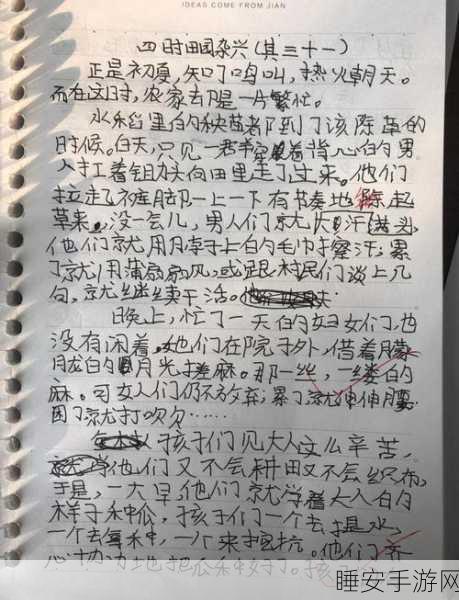 IDEAS COME FROM JIAN
四时田园杂兴(其三十一)
正是初夏,知了鸣叫,热火朝天。
而在这时,农家却是一片繁忙。
水稻里的秧苗都到了该除草的
时候。白天,只见一群穿着背心的男
人扛着锄头向田里走了过来。他们
拉起裤脚一上一下有节奏地除起
草来。没一会儿,男人们就大汗满头,
他们就用脖子上的毛巾擦汗;累
了就用蒲扇扇风,或跟村民们谈上几
句,就继续干活。
晚上,忙了一天的妇女们也
没有闲着。她们在院子外,借着朦
胧的月光搓麻。那一丝,一缕的
麻。可女人们仍不放弃;累了就伸伸腰
困了就打哈欠……
孩子们见大人这么辛苦,
他们又不会耕田又不会织布,
于是,一大早,他们就学着大人的
样子种瓜,孩子们一个去提水,
一个去拿种,一个来挖坑。他们齐
心协力地把瓜种好了。孩
睡安手游网